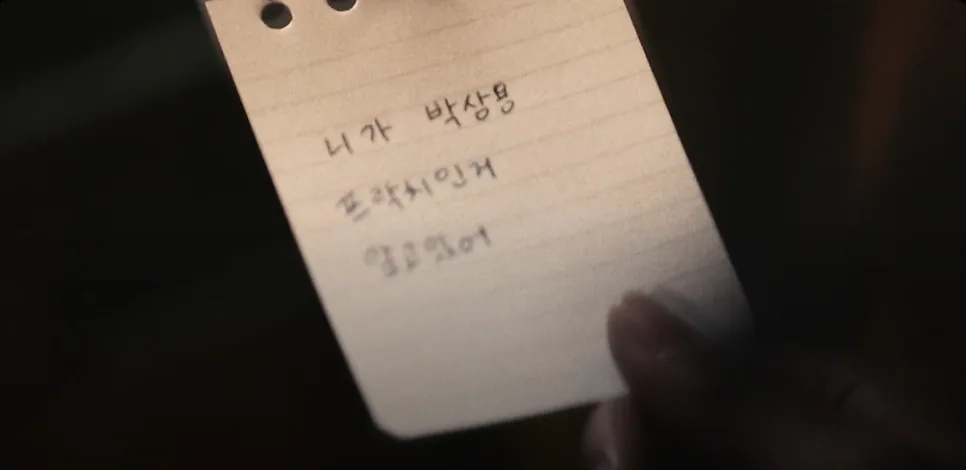 니가 박상용
프락치인거
알고있어